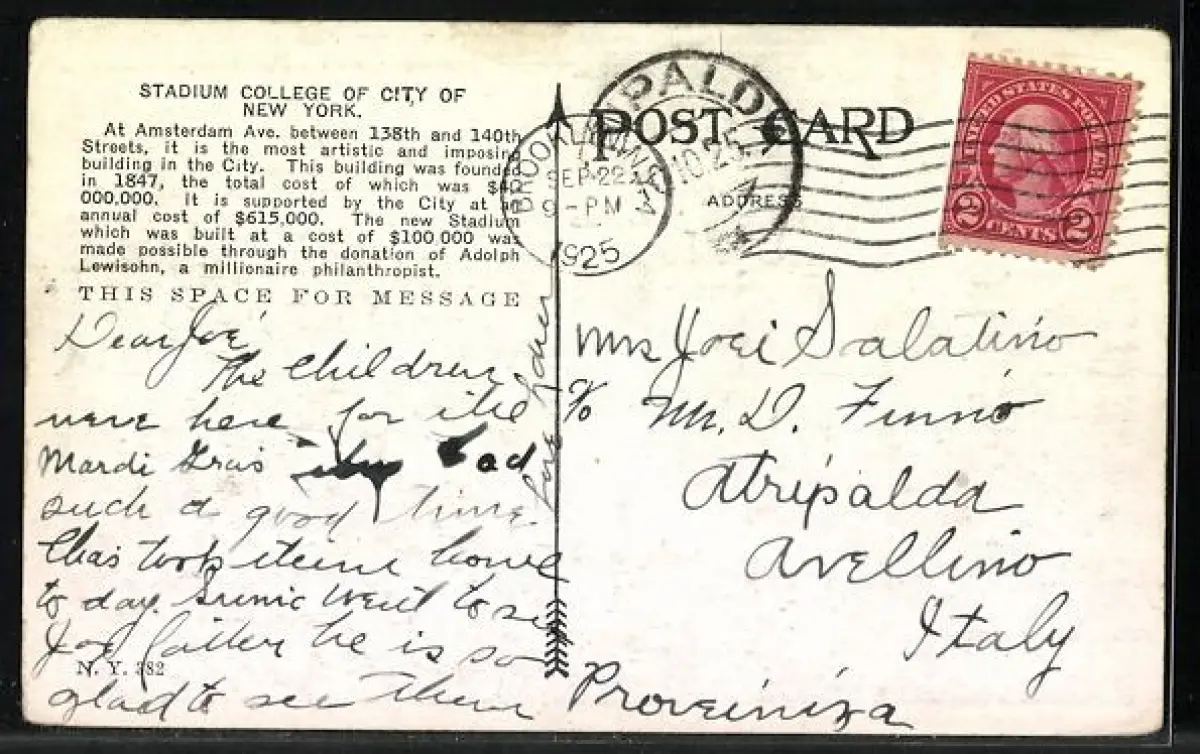 STADIUM COLLEGE OF CITY OF
NEW YORK.
At Amsterdam Ave. between 138th and 140th
Streets, it is the most artistic and imposing
building in the City. This building was founded
in 1847, the total cost of which was
000,000. It is supported by the City at an
annual cost of $615,000. The new Stadium
which was built at a cost of $100,000 was
made possible through the donation of Adolph
Lewisohn, a millionaire philanthropist.
THIS SPACE FOR MESSAGE
Dear Joe
The Children
were here for the
Mardi Gras had
such a good time.
Chas took them home
to day. went to see
Joe father he is so
glad to see them
N. Y. 382
POST CARD
ADDRESS
BROOKLYN
SEP 22
9-PM
1925
ATRIPALDA
10.25
UNITED STATES POSTAGE
2 CENTS 2
Mrs Joei Salatino
c/o Mr. D. Finno
Atripalda
Avellino
Italy
Proveiniza